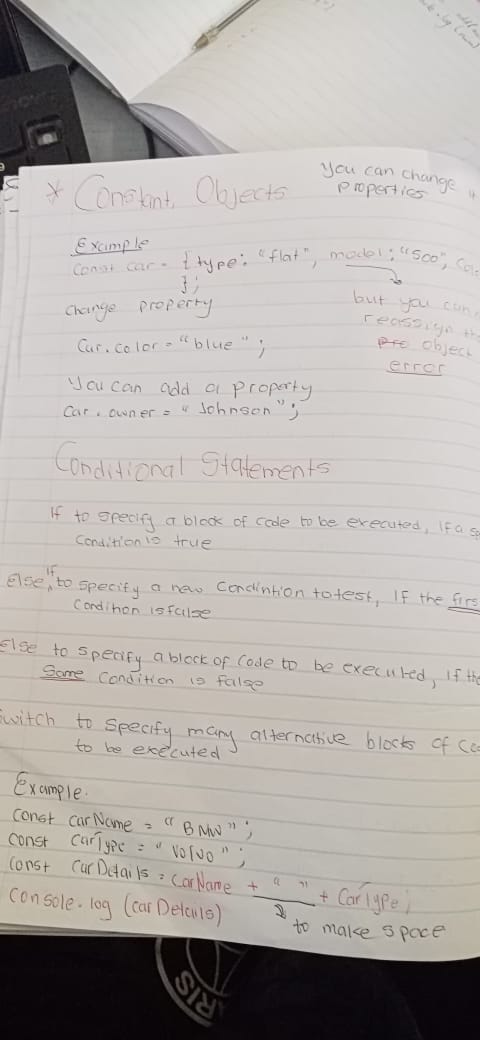 * Constant Objects
You can change
properties
Example
const car = { type: "flat", model: "500",
};
but you can
change property
reassign
Car.color = "blue";
object
error
You can add a property
Car.owner = "Johnson";
Conditional Statements
If to specify a block of code to be executed, if a
condition is true
Else if to specify a new Condintion to test, If the
Condition is false
Else to specify a block of Code to be executed, if the
Same Condition is false
switch to specify many alternative blocks of
to be executed
Example.
Const carName = "BMW";
const CarType = "Volvo";
Const CarDetails = CarName + " " + CarType;
Console.log (car Details)
to make space
ARIS